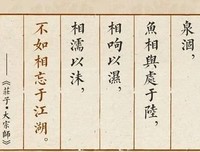 泉涸，
魚相與處于陸，
相呴以濕，
相濡以沫，
不如相忘于江湖。
——《莊子·大宗師》